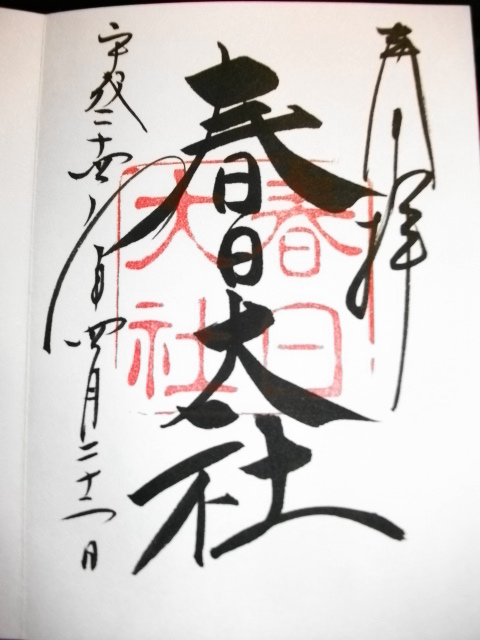 奉拝
春日大社
春日
大社
平成二十四年四月二十一日